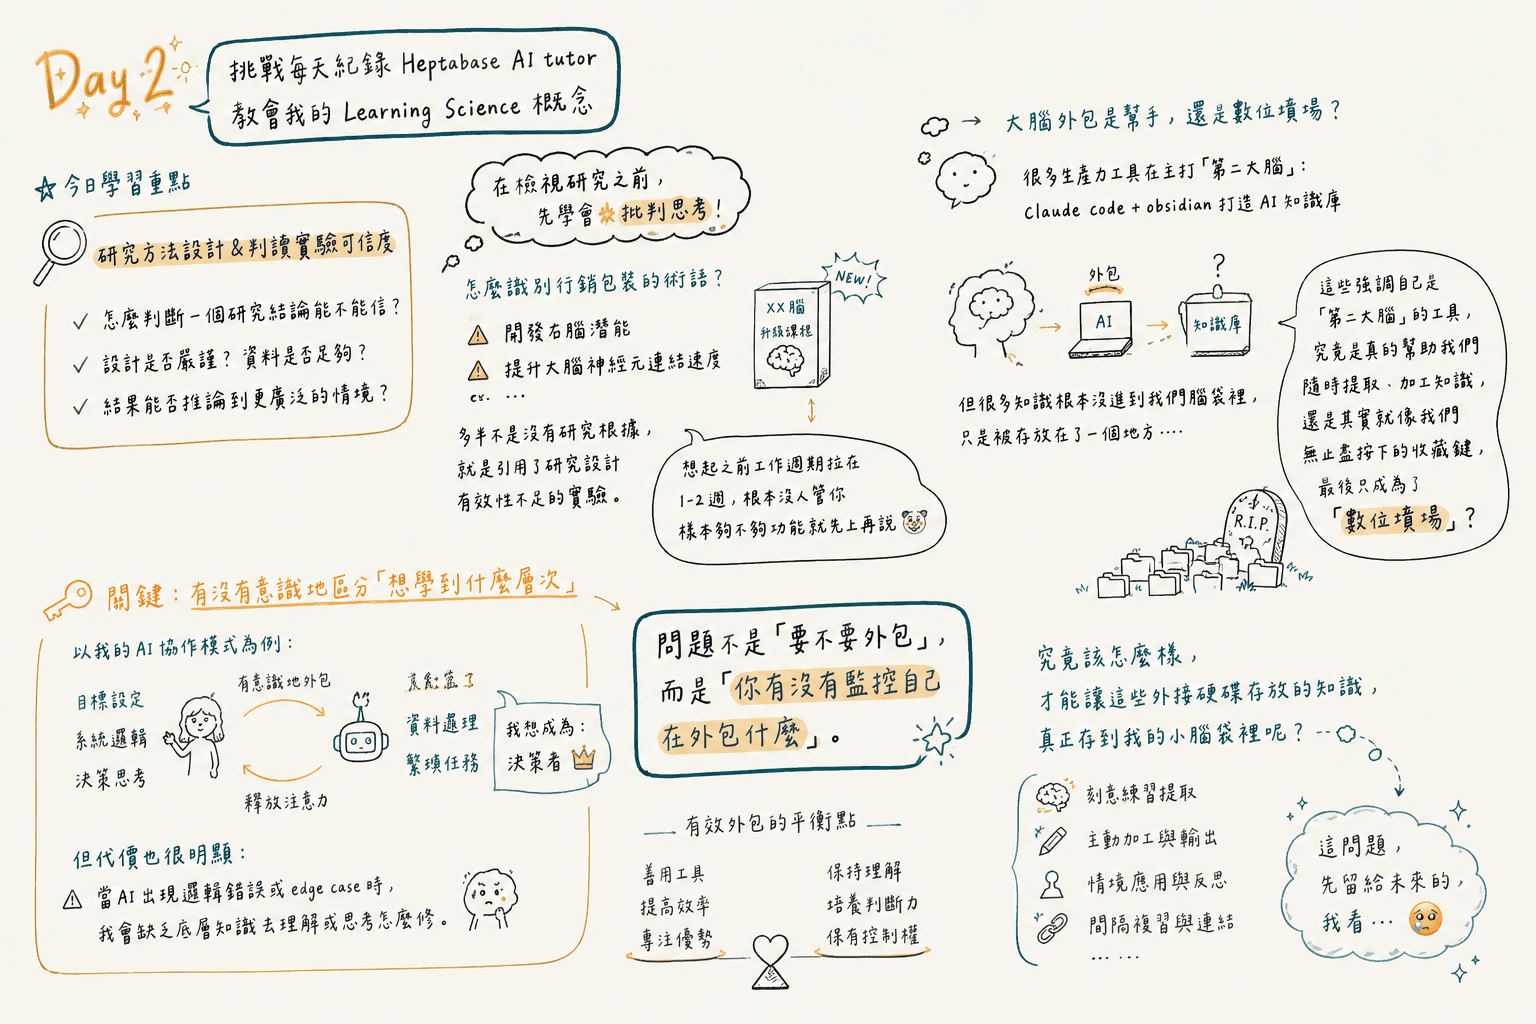 Day 2
挑戰每天紀錄 Heptabase AI tutor
教會我的 Learning Science 概念
今日學習重點
研究方法設計 & 判讀實驗可信度
怎麼判斷一個研究結論能不能信？
設計是否嚴謹？資料是否足夠？
結果能否推論到更廣泛的情境？
在檢視研究之前，
先學會批判思考！
怎麼識別行銷包裝的術語？
開發右腦潛能
提升大腦神經元連結速度
ex. ...
多半不是沒有研究根據，
就是引用了研究設計
有效性不足的實驗。
NEW!
XX腦
升級課程
想起之前工作週期拉在
1-2週，根本沒人管你
樣本夠不夠功能就先上再說
大腦外包是幫手，還是數位墳場？
很多生產力工具在主打「第二大腦」：
Claude code + obsidian 打造 AI 知識庫
外包
AI
?
知識庫
但很多知識根本沒進到我們腦袋裡，
只是被存放在了一個地方....
這些強調自己是
「第二大腦」的工具，
究竟是真的幫助我們
隨時提取、加工知識，
還是其實就像我們
無止盡按下的收藏鍵，
最後只成為了
「數位墳場」？
R.I.P.
關鍵：有沒有意識地區分「想學到什麼層次」
以我的 AI 協作模式為例：
目標設定
系統邏輯
決策思考
有意識地外包
釋放注意力
資料處理
繁瑣任務
我想成為：
決策者
但代價也很明顯：
當 AI 出現邏輯錯誤或 edge case 時，
我會缺乏底層知識去理解或思考怎麼修。
問題不是「要不要外包」，
而是「你有沒有監控自己
在外包什麼」。
有效外包的平衡點
善用工具
提高效率
專注優勢
保持理解
培養判斷力
保有控制權
究竟該怎麼樣，
才能讓這些外接硬碟存放的知識，
真正存到我的小腦袋裡呢？
刻意練習提取
主動加工與輸出
情境應用與反思
間隔複習與連結
... ...
這問題，
先留給未來的，
我看...